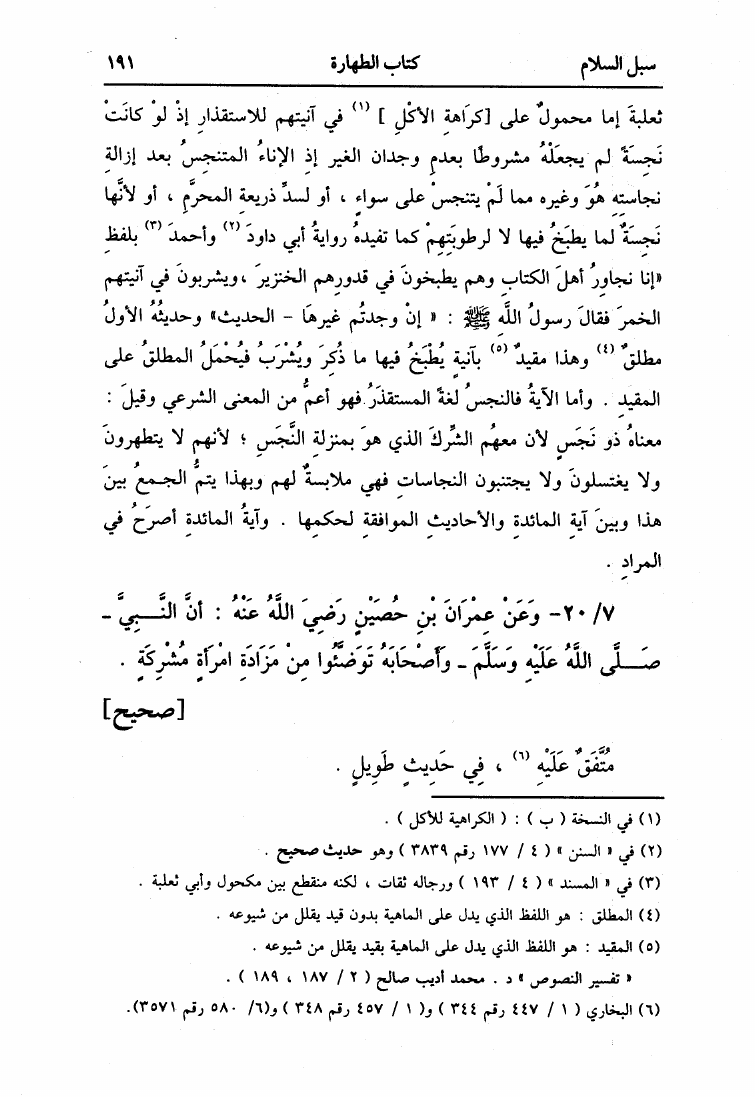 سبل السلام كتاب الطهارة ١٩١
ثعلبةَ إما محمولٌ على [كرَاهةِ الأكْلِ ] (١) في آنيتهم للاستقذارِ إذْ لوْ كانَتْ
نَجِسَةً لم يجعَلْهُ مشروطًا بعدمِ وجدان الغير إذِ الإناءُ المتنجسُ بعد إزالةِ
نجاستِه هُوَ وغيره مما لَمْ يتنجسْ على سواءٍ ، أو لسدِّ ذريعةِ المحرَّمِ ، أو لأنَّها
نَجِسَةٌ لما يطبَخُ فيها لا لرطوبَتِهمْ كما تفيدُه روايةُ أبي داودَ (٢) وأحمدَ (٣) بلفظِ
«إنا نجاورُ أهلَ الكتابِ وهم يطبخونَ في قدورِهم الخنزيرَ ،ويشربونَ في آنيتهم
الخمرَ فقالَ رسولُ اللَّهِ ﷺ : « إنْ وجدتُم غيرهَا - الحديث» وحديثُهُ الأولُ
مطلقٌ (٤) وهذا مقيدٌ (٥) بآنيةٍ يُطْبَخُ فيها ما ذُكِرَ ويُشْرَبُ فيُحْمَلُ المطلقُ على
المقيدِ . وأما الآيةُ فالنجسُ لغةً المستقذَرُ فهو أعمُّ من المعنى الشرعي وقيلَ :
معناهُ ذو نَجَسٍ لأن معهُم الشِّركَ الذي هوَ بمنزلةِ النَّجَسِ ؛ لأنهم لا يتطهرونَ
ولا يغتسلونَ ولا يجتنبون النجاساتِ فهي ملابسةٌ لهم وبهذا يتمُّ الجمعُ بينَ
هذا وبينَ آيةِ المائدةِ والأحاديثِ الموافقةِ لحكمِها . وآيةُ المائدةِ أصرَحُ في
المرادِ .
٢٠/٧- وَعَنْ عِمْرَانَ بْنِ حُصَيْنٍ رَضِيَ اللَّهُ عَنْهُ : أنَّ النَّبِيَّ ـ
صَلَّى اللَّهُ عَلَيْهِ وَسَلَّمَ ـ وَأَصْحَابَهُ تَوَضَّئُوا مِنْ مَزَادَةِ امْرَأَةٍ مُشْرِكَةٍ .
[صحيح]
مُتَّفَقٌ عَلَيْهِ (٦) ، فِي حَدِيثٍ طَوِيلٍ .
(١) في النسخة ( ب ) : ( الكراهية للأكل ) .
(٢) في « السنن » ( ٤ / ١٧٧ رقم ٣٨٣٩ ) وهو حديث صحيح .
(٣) في « المسند » ( ٤ / ١٩٣ ) ورجاله ثقات ، لكنه منقطع بين مكحول وأبي ثعلبة .
(٤) المطلق : هو اللفظ الذي يدل على الماهية بدون قيد يقلل من شيوعه .
(٥) المقيد : هو اللفظ الذي يدل على الماهية بقيد يقلل من شيوعه .
« تفسير النصوص » د . محمد أديب صالح ( ٢ / ١٨٧ ، ١٨٩ ) .
(٦) البخاري ( ١ / ٤٤٧ رقم ٣٤٤ ) و( ١ / ٤٥٧ رقم ٣٤٨ ) و(٦/ ٥٨٠ رقم ٣٥٧١).